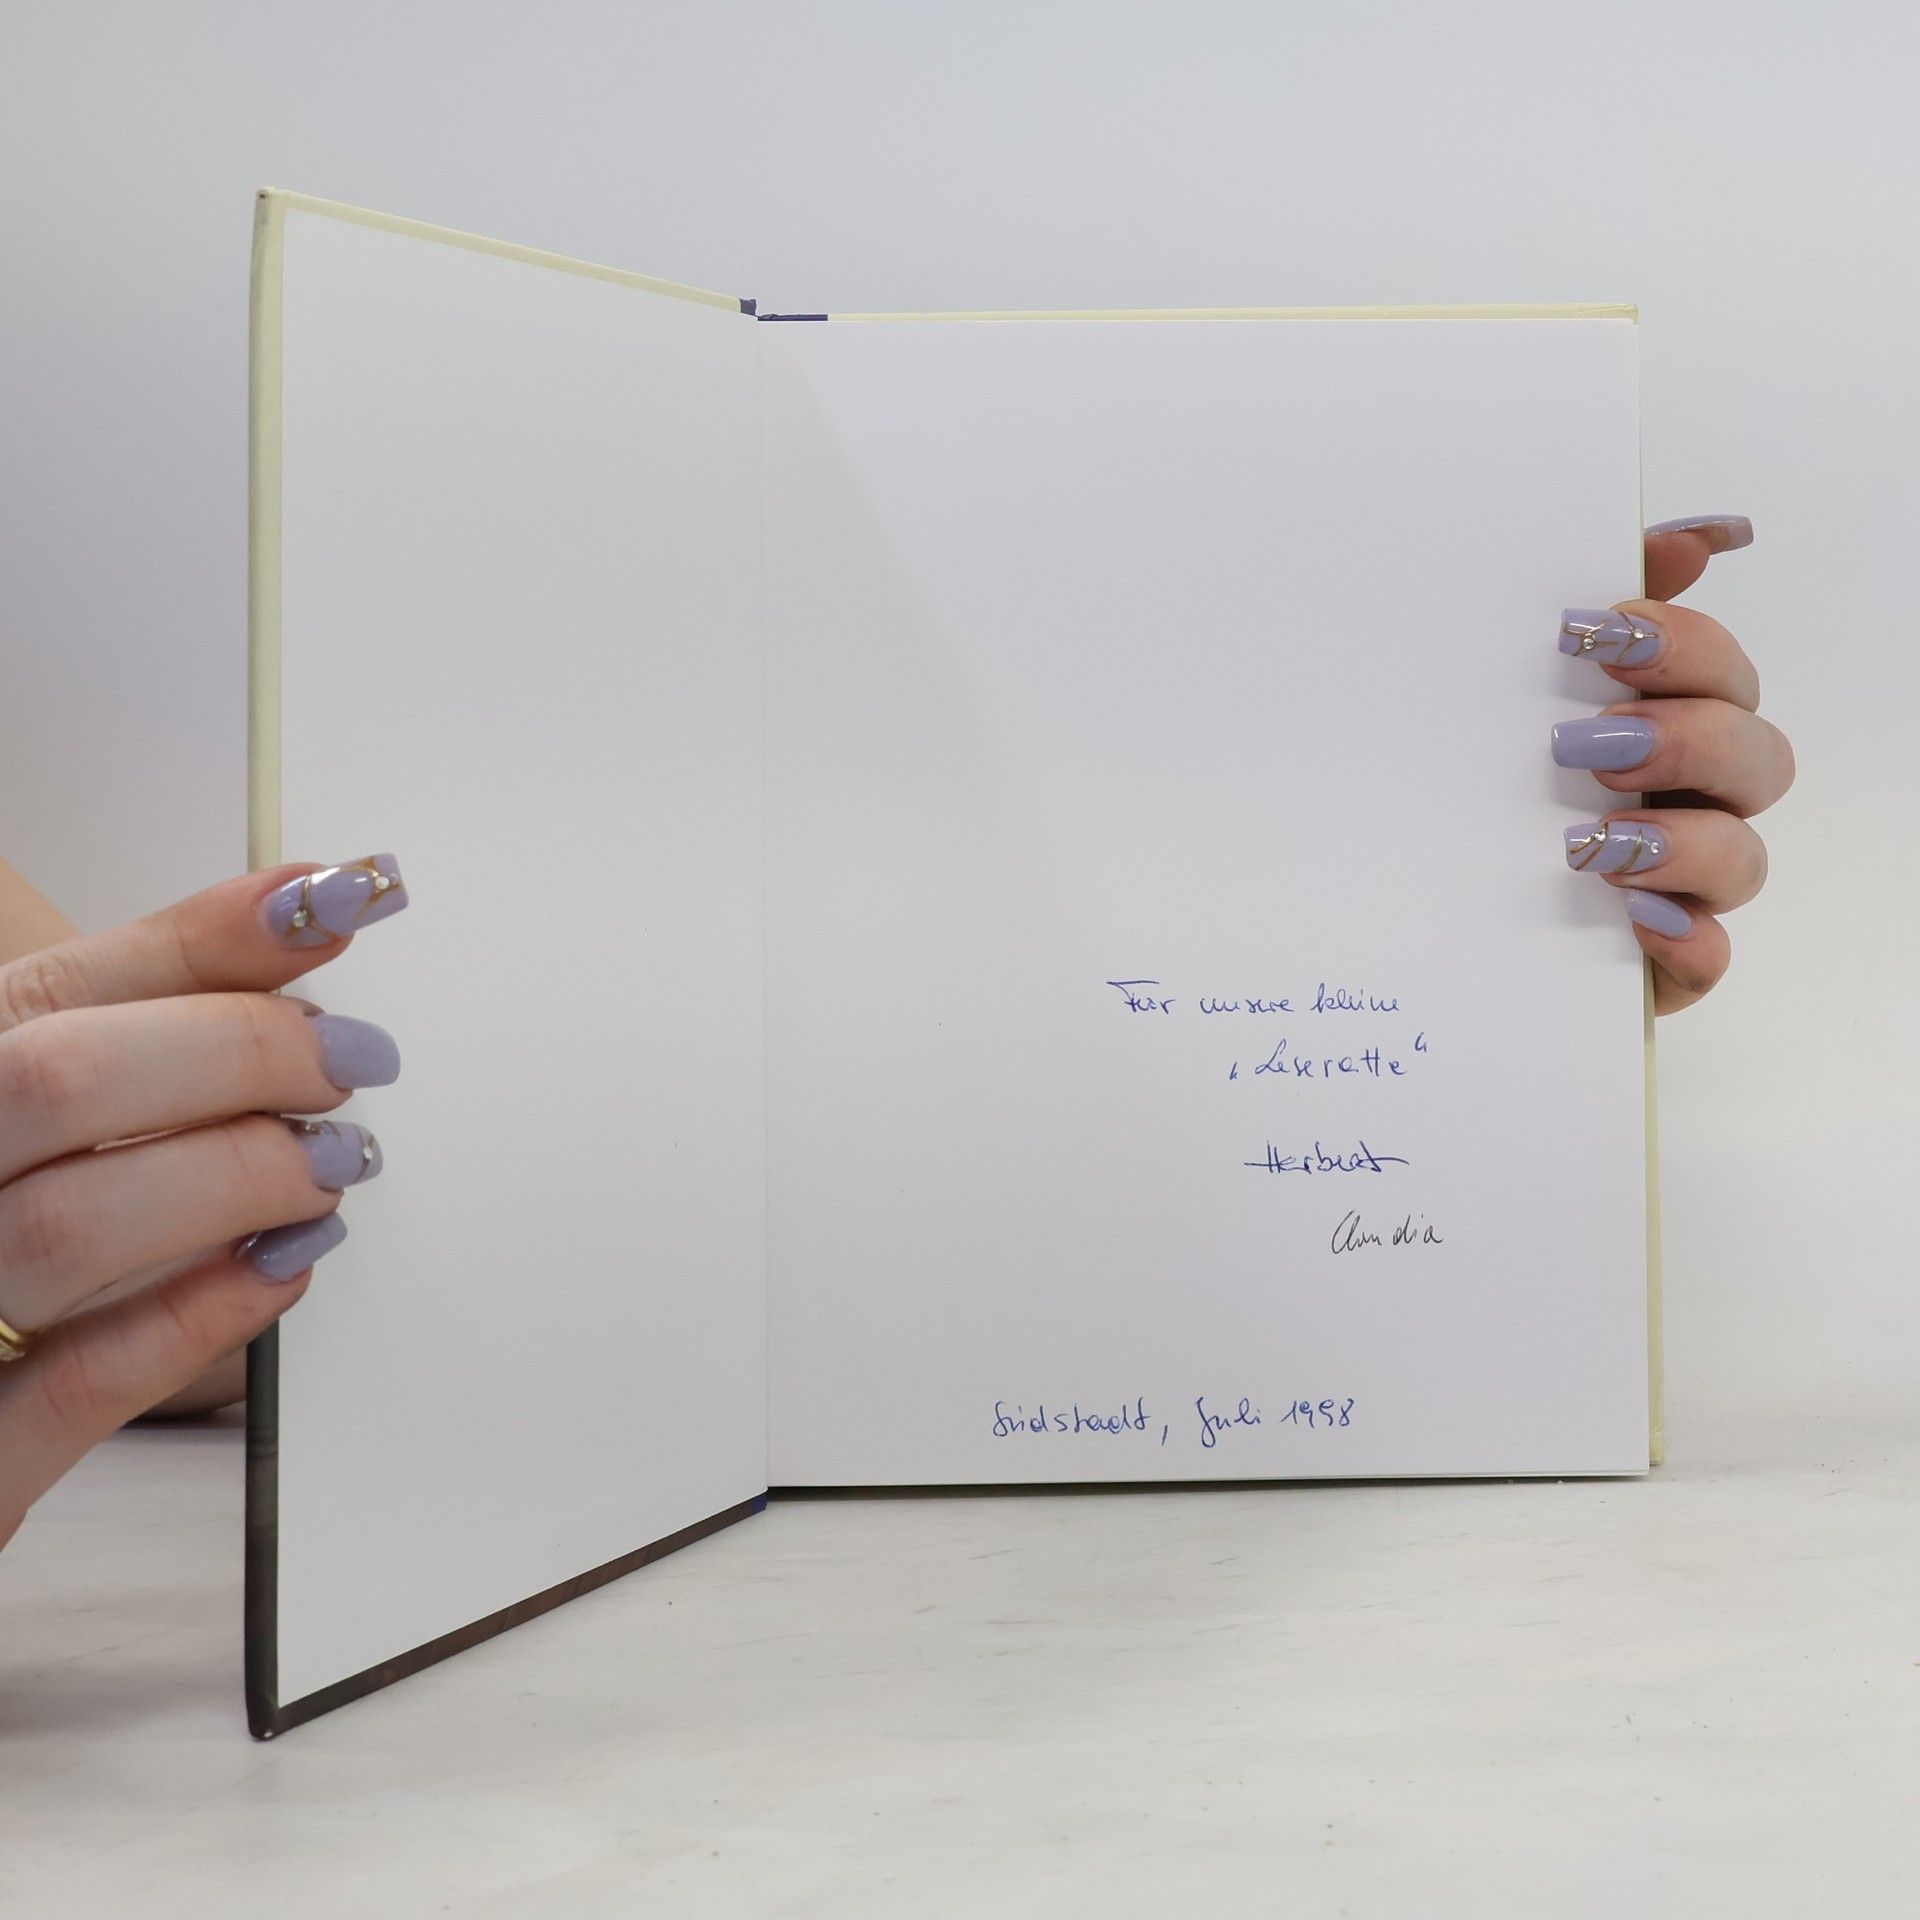 Für unsere kleine
„Leseratte“
Herbert
Claudia
Südstadt, Juli 1998